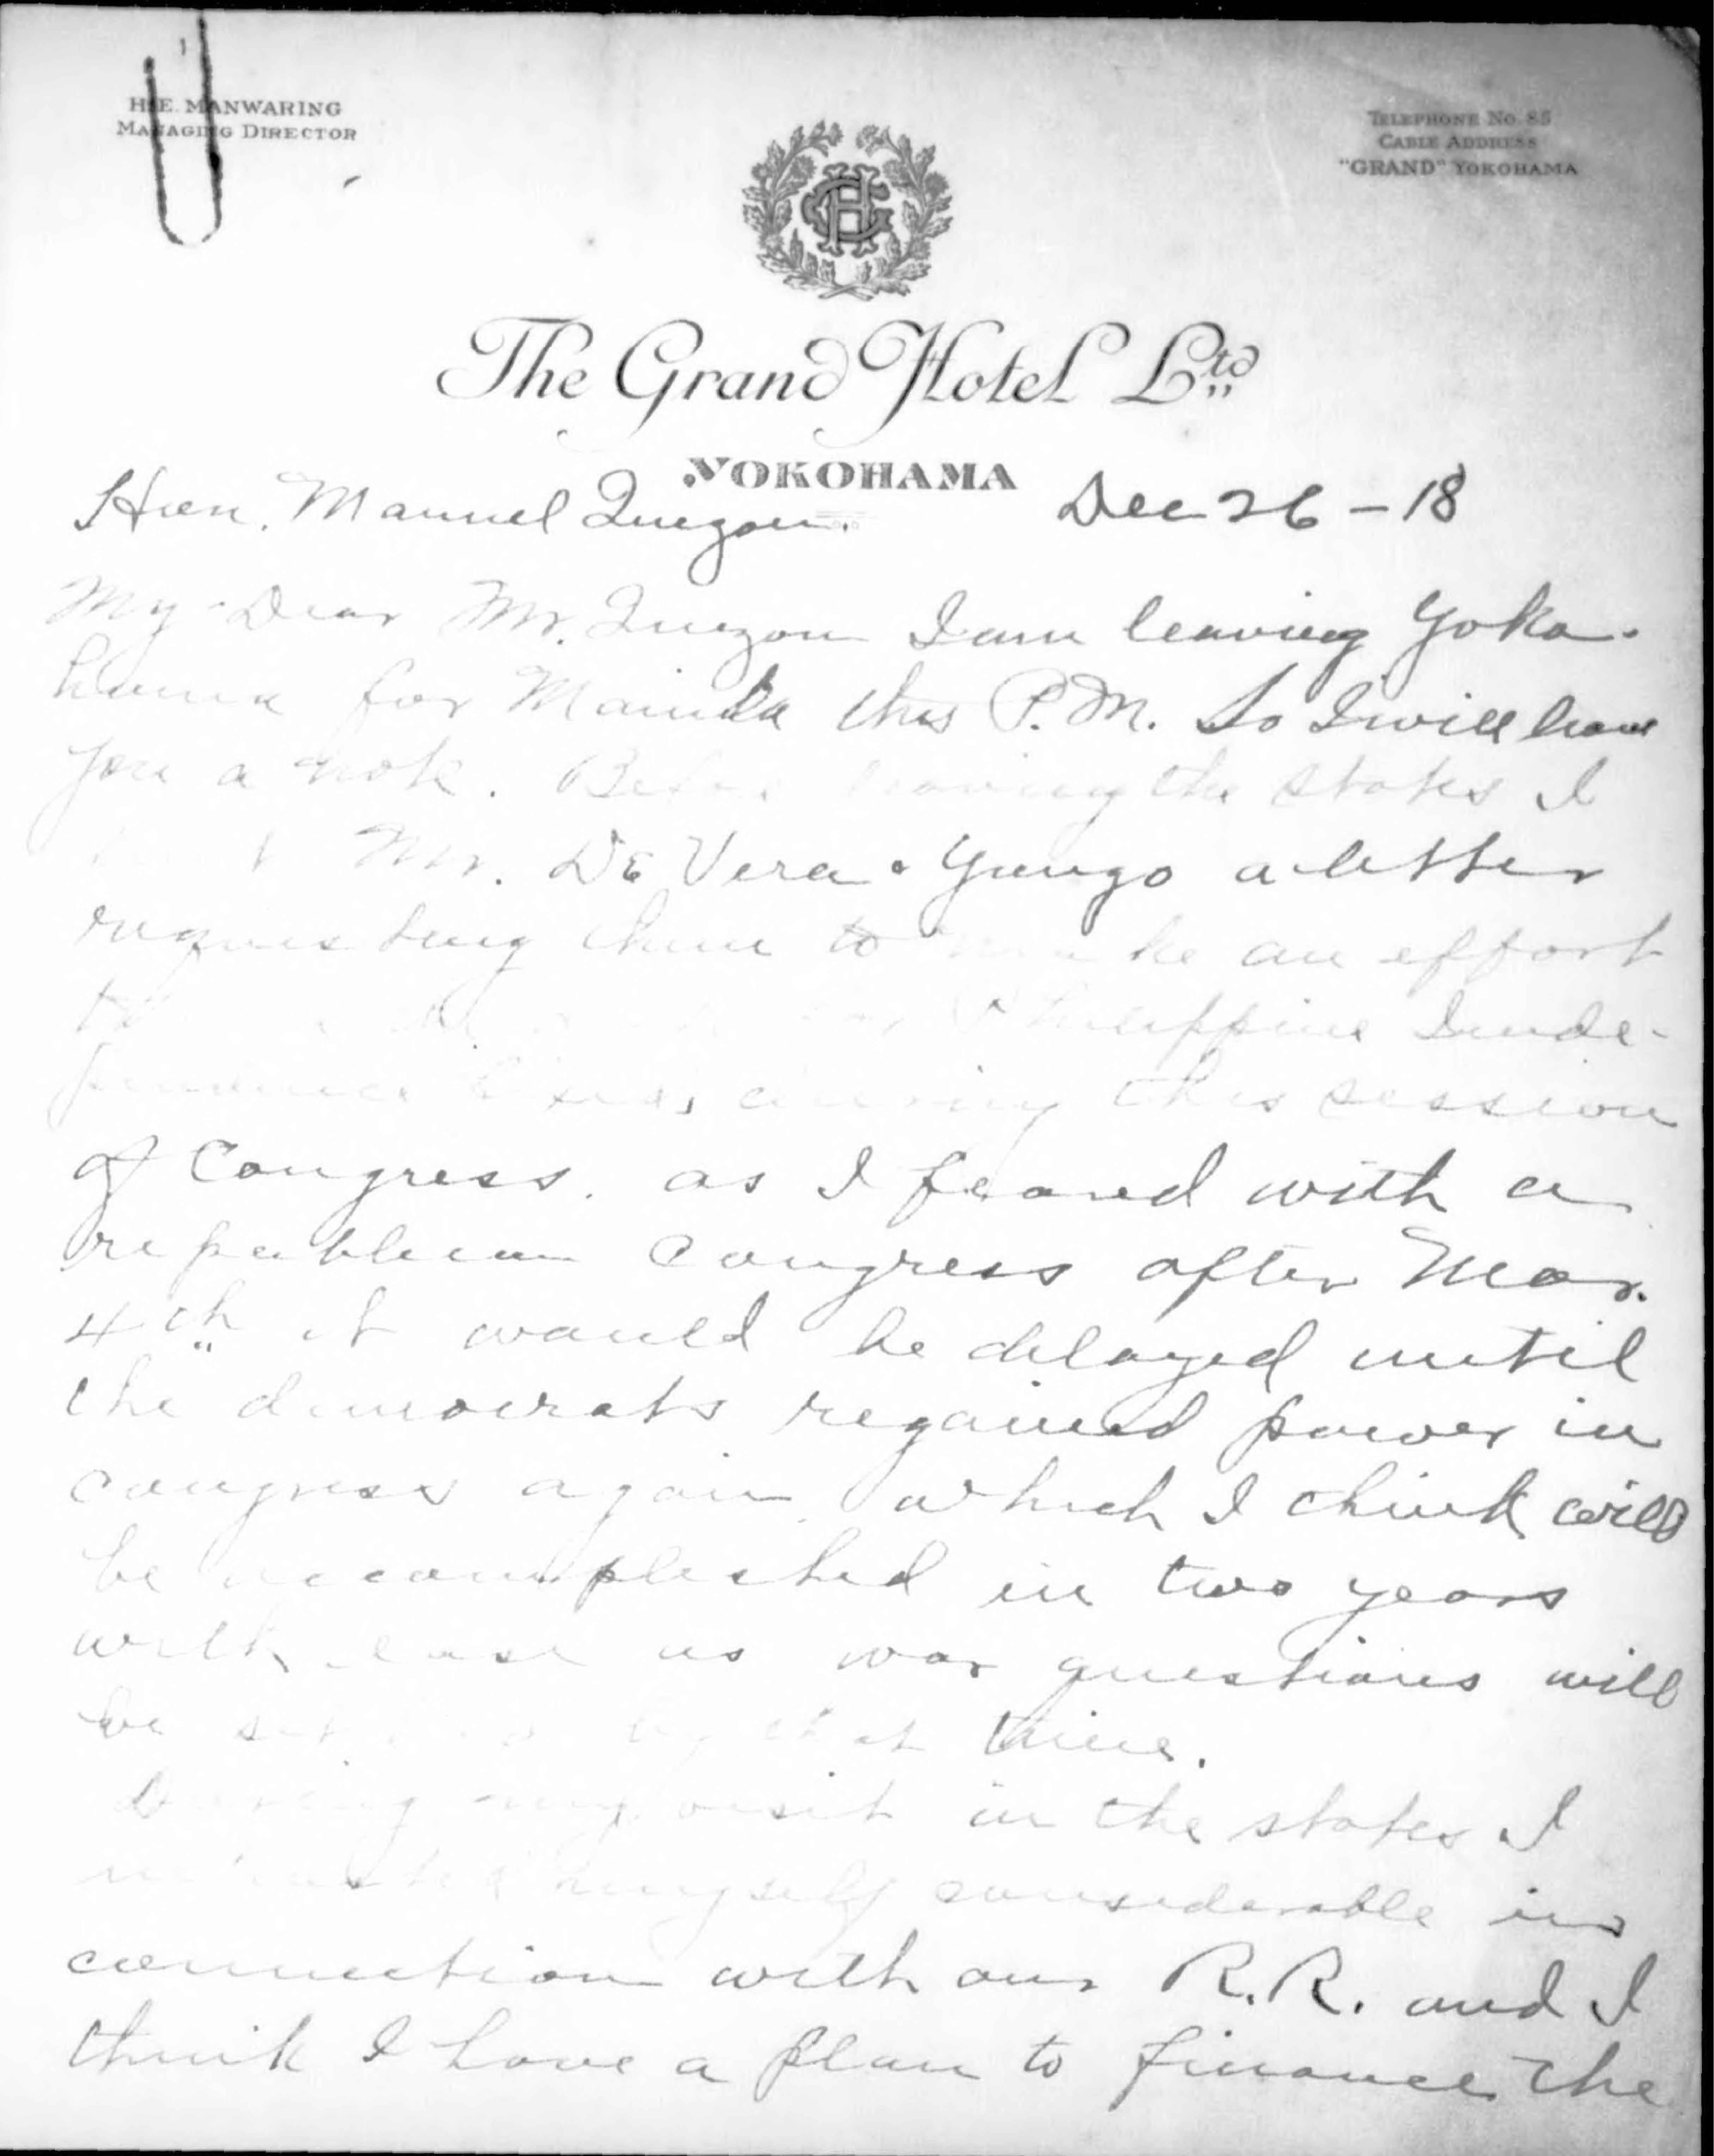 H.E. MANWARING
MANAGING DIRECTOR
TELEPHONE No. 85
CABLE ADDRESS
"GRAND" YOKOHAMA
The Grand Hotel Ltd
YOKOHAMA
Hon. Manuel Quezon. Dec 26-18
My Dear Mr. Quezon I am leaving Yoko-
hama for Manila this P.M. So I will leave
you a note. Before leaving the states I
Mr. De Vera & Yango a letter
requesting them to make an effort
Philippine Inde-
pendence during this session
of Congress. as I feared with a
republican Congress after Mar.
4th it would be delayed until
the democrats regained power in
congress again which I think will
be accomplished in two years
with ease as war questions will
be settled by that time.
During my visit in the states I
interested myself considerable in
connection with our R.R. and I
think I have a plan to finance the